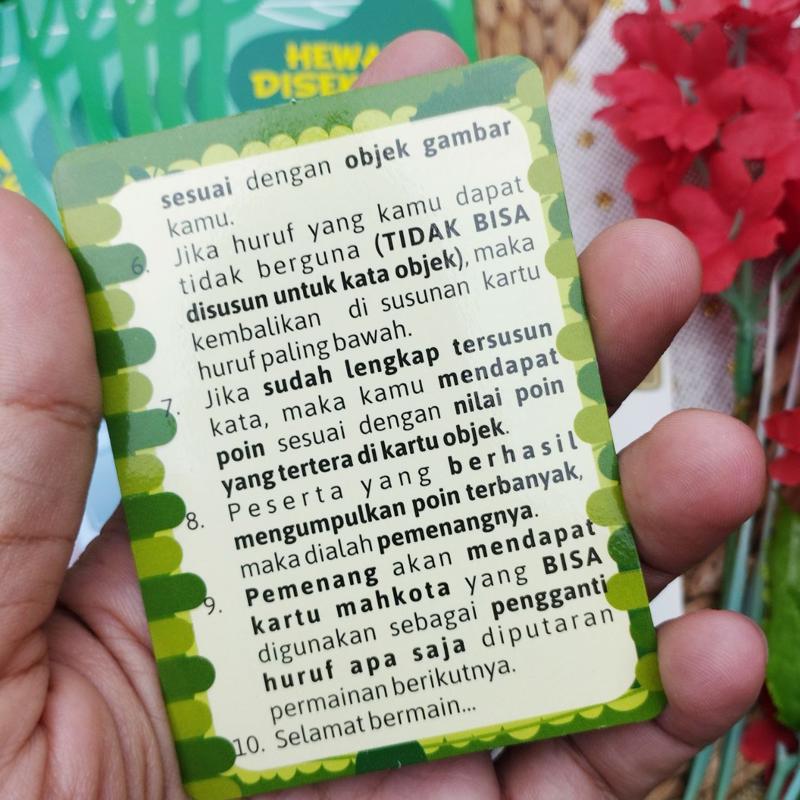 HEWA
DISEK
sesuai dengan objek gambar
kamu.
6. Jika huruf yang kamu dapat
tidak berguna (TIDAK BISA
disusun untuk kata objek), maka
kembalikan di susunan kartu
huruf paling bawah.
7. Jika sudah lengkap tersusun
kata, maka kamu mendapat
poin sesuai dengan nilai poin
yang tertera di kartu objek.
8. Peserta yang berhasil
mengumpulkan poin terbanyak,
maka dialah pemenangnya.
9. Pemenang akan mendapat
kartu mahkota yang BISA
digunakan sebagai pengganti
huruf apa saja diputaran
permainan berikutnya.
10. Selamat bermain...